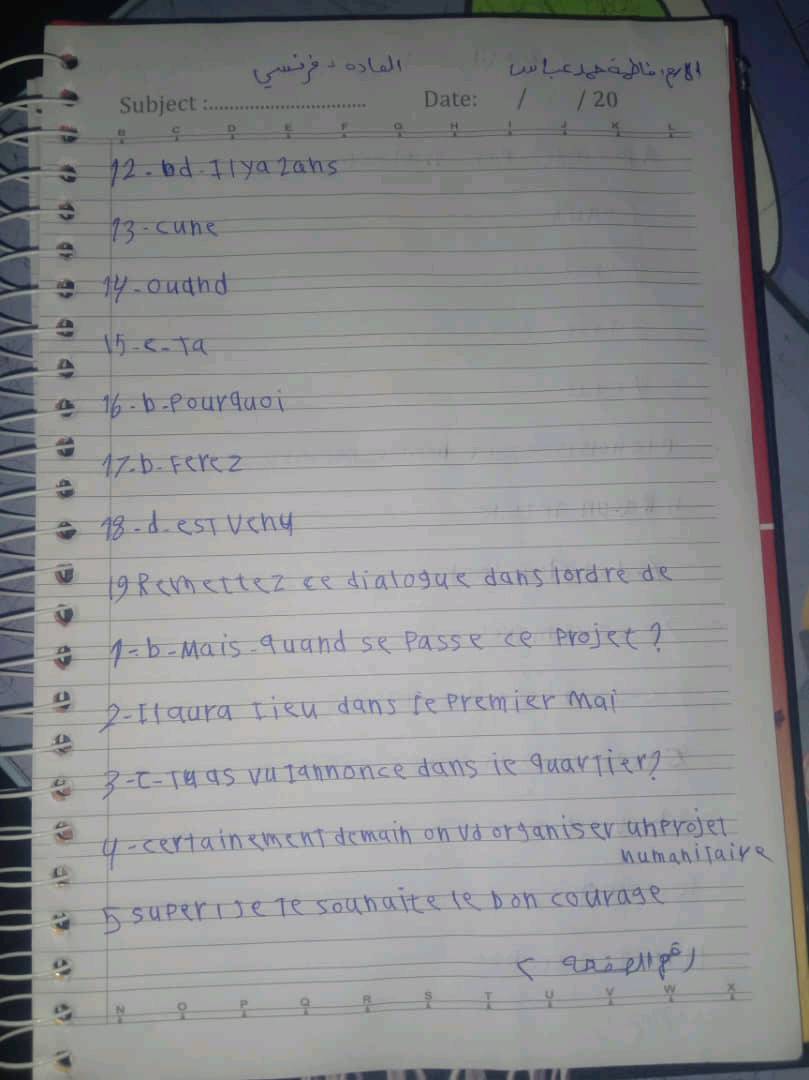 الاسم: فاطمة حمد عباس المادة: فرنسي
Subject :.............................. Date: / / 20
B C D E F G H I J K L
12-bd-Ilya 2ans
13-cune
14-ouand
15-c-Ta
16-b-Pourquoi
17-b-Ferez
18-d-est venu
19 Remettez ce dialogue dans lordre de
1-b-Mais-quand se Passe ce Projet?
2-Ilaura lieu dans le Premier Mai
3-c-Tu as vu lannonce dans le quartier?
4-certainement demain on va organiser un Projet
humanitaire
5 super! Je te souhaite le bon courage
رقم الصفحة ٢
N O P Q R S T U V W X